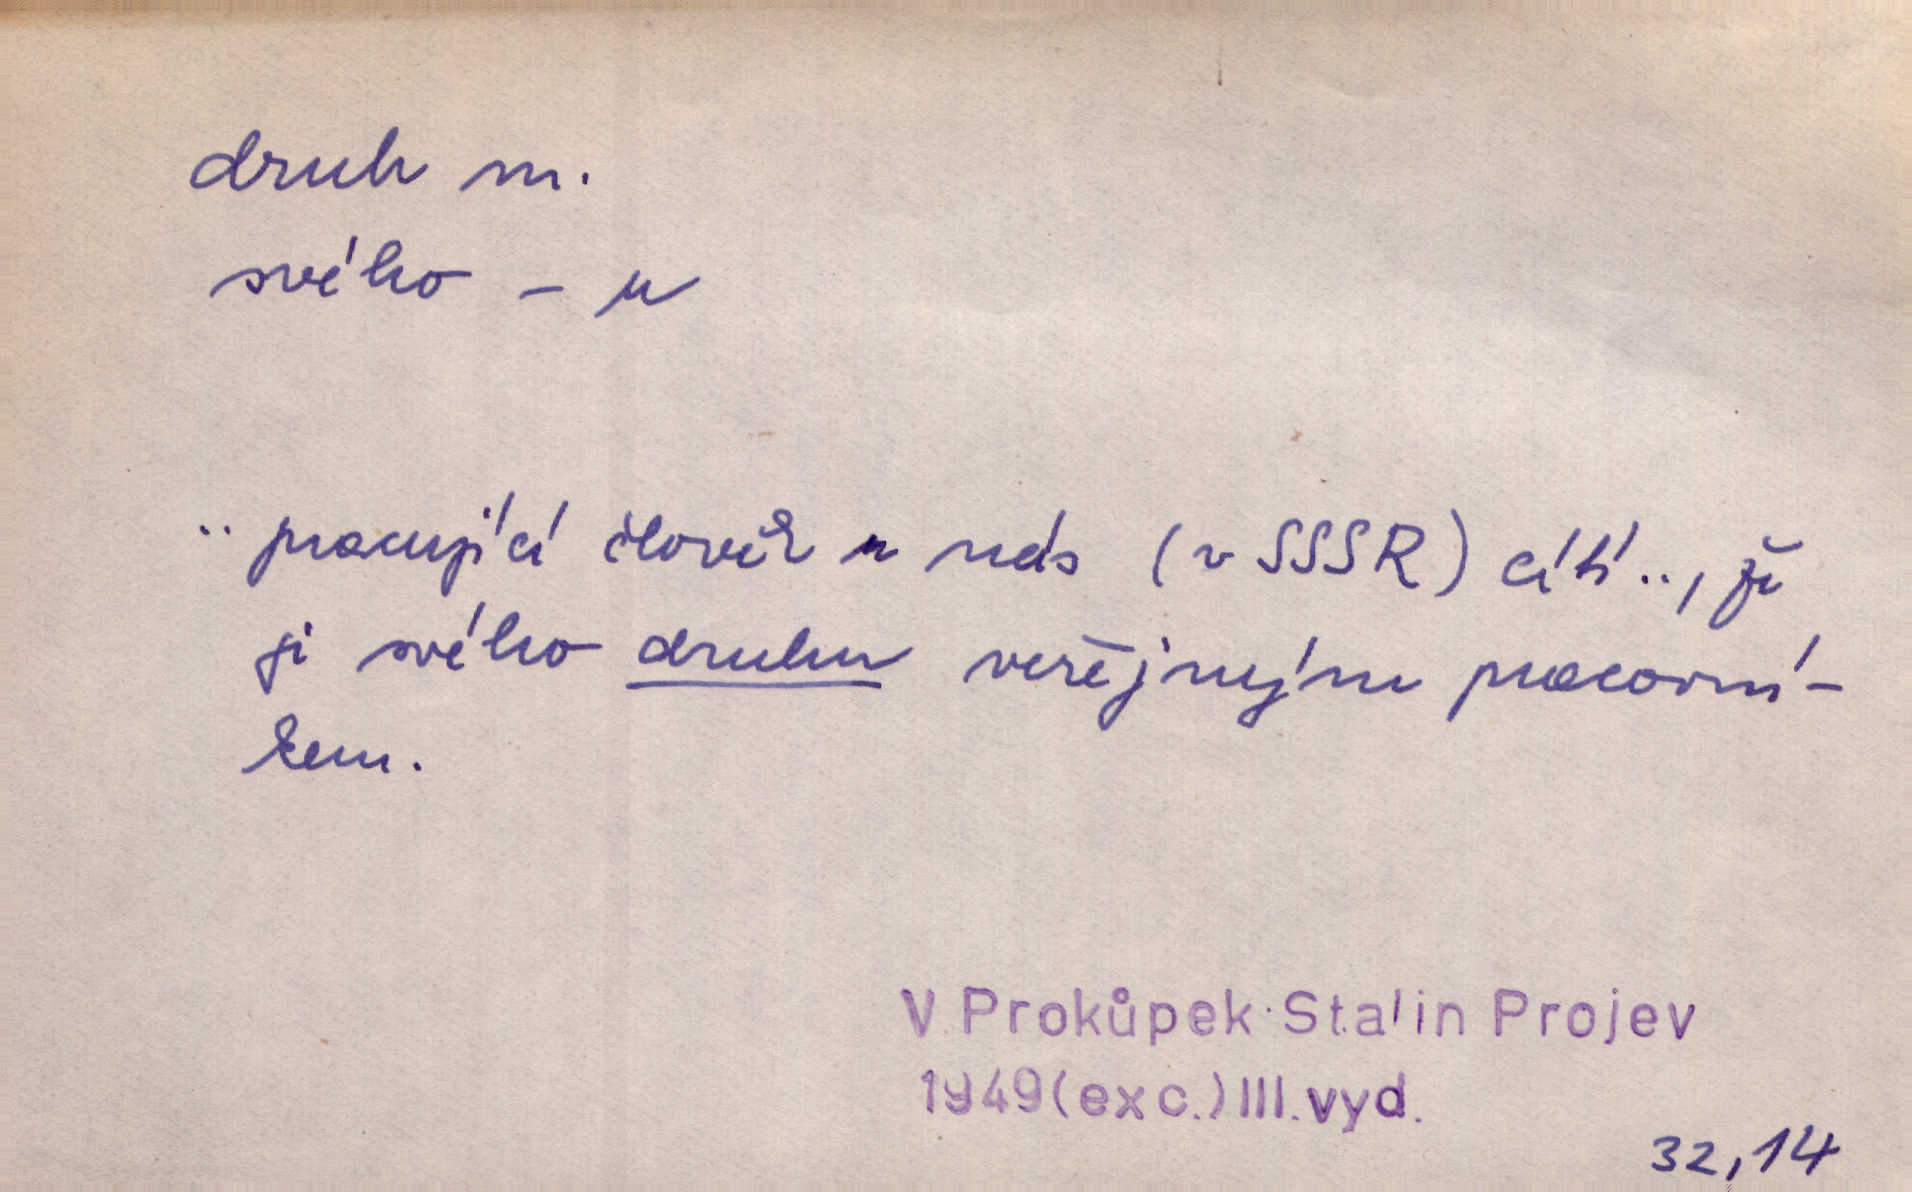 druh m.
svého – u
.. pracující člověk u nás (v SSSR) cítí .., že
je svého druhu veřejným pracovní-
kem.
V. Prokůpek: Stalin Projev
1949 (exc.) III. vyd.
32,14